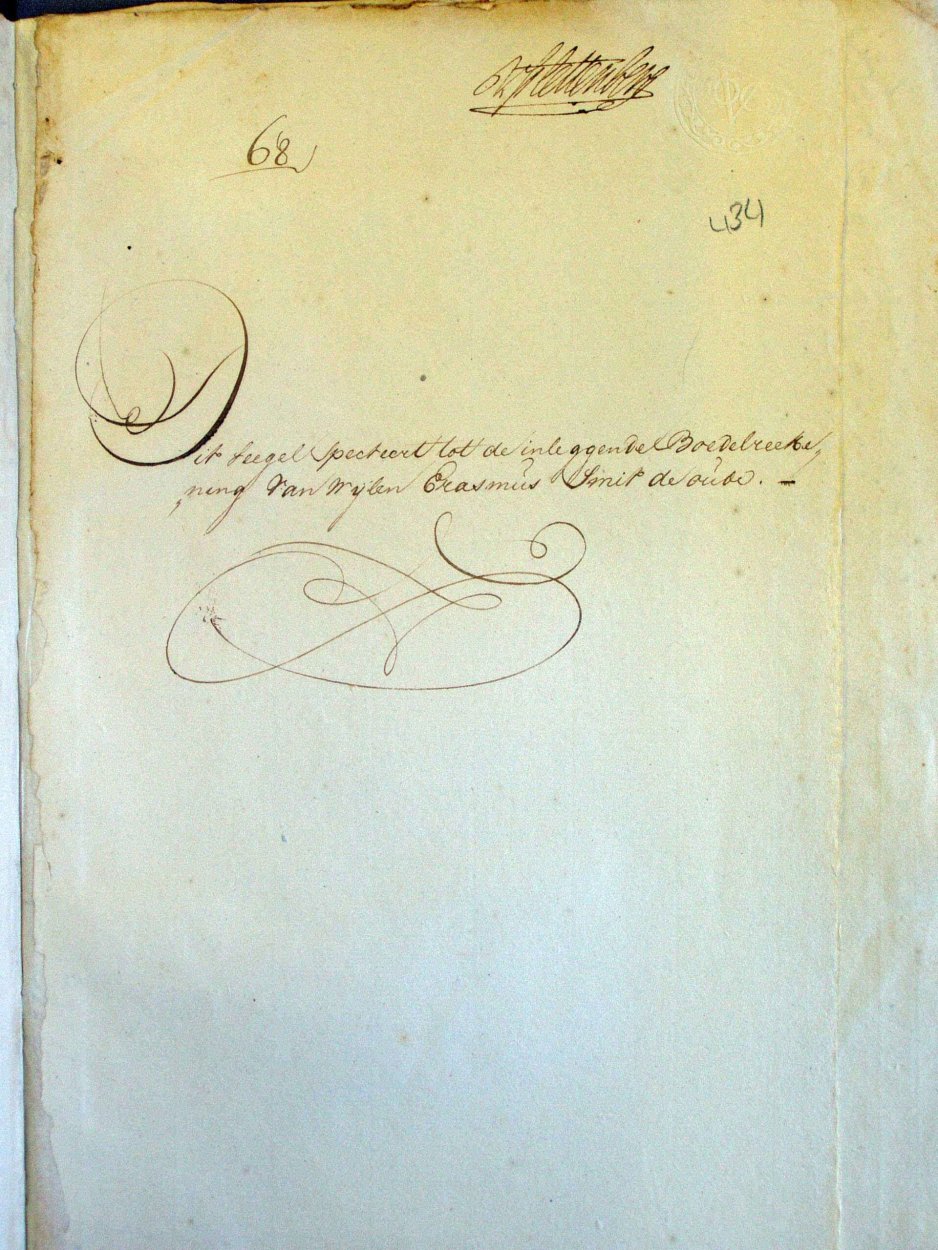 Plettenberg
68
434
Dit seegel specteert tot de inleggende Boedelreeke„
„ning van wijlen Erasmus Smit de oude. —